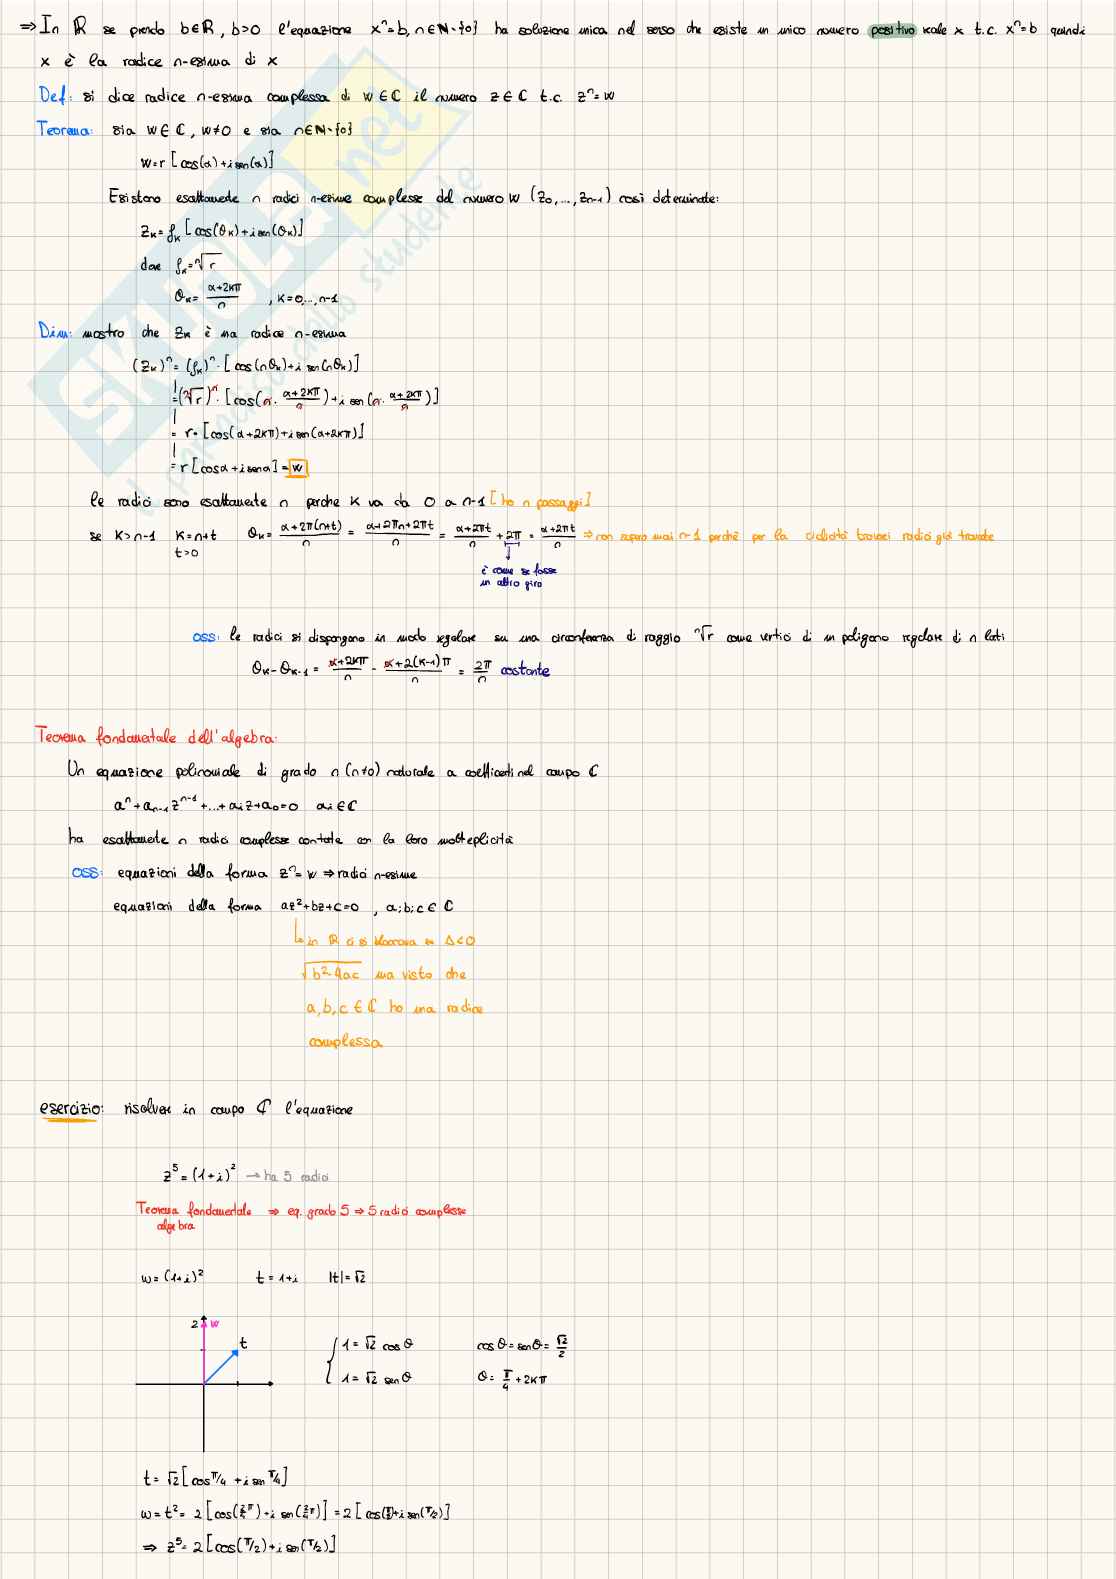 ⇒ In ℝ se prendo b∈ℝ, b>0 l'equazione xⁿ=b, n∈ℕ-{0} ha soluzione unica nel senso che esiste un unico numero positivo reale x t.c. xⁿ=b quindi
x è la radice n-esima di x
Def: si dice radice n-esima complessa di w∈ℂ il numero z∈ℂ t.c. zⁿ=w
Teorema: sia w∈ℂ, w≠0 e sia n∈ℕ-{0}
w=r[cos(α)+i sen(α)]
Esistono esattamente n radici n-esime complesse del numero w (z₀,...,zₙ₋₁) così determinate:
zₖ=ρₖ[cos(θₖ)+i sen(θₖ)]
dove ρₖ=ⁿ√r
θₖ=(α+2kπ)/n , k=0,...,n-1
Dim: mostro che zₖ è una radice n-esima
(zₖ)ⁿ=(ρₖ)ⁿ·[cos(nθₖ)+i sen(nθₖ)]
=(ⁿ√r)ⁿ·[cos(n·(α+2kπ)/n)+i sen(n·(α+2kπ)/n)]
= r·[cos(α+2kπ)+i sen(α+2kπ)]
= r[cosα+i senα]=w
le radici sono esattamente n perche k va da 0 a n-1 [ho n passaggi]
se k>n-1 k=n+t θₖ=(α+2π(n+t))/n = (α+2πn+2πt)/n = (α+2πt)/n +2π = (α+2πt)/n ⇒ non supero mai n-1 perchè per la ciclicità troverei radici già trovate
t>0
è come se fosse
un altro giro
oss: le radici si dispongono in modo regolare su una circonferenza di raggio ⁿ√r come vertici di un poligono regolare di n lati
θₖ-θₖ₋₁ = (α+2kπ)/n - (α+2(k-1)π)/n = 2π/n costante
Teorema fondamentale dell'algebra:
Un equazione polinomiale di grado n (n≠0) naturale a coefficienti nel campo ℂ
aⁿ+aₙ₋₁zⁿ⁻¹+...+a₁z+a₀=0 aᵢ∈ℂ
ha esattamente n radici complesse contate con la loro molteplicità
oss: equazioni della forma zⁿ=w ⇒ radici n-esime
equazioni della forma az²+bz+c=0 , a;b;c∈ℂ
↳ in ℝ ci si bloccava se Δ<0
√b²-4ac ma visto che
a,b,c∈ℂ ho una radice
complessa
esercizio: risolvere in campo ℂ l'equazione
z⁵=(1+i)² → ha 5 radici
Teorema fondamentale ⇒ eq. grado 5 ⇒ 5 radici complesse
algebra
w=(1+i)² t=1+i |t|=√2
2 w
t
{ 1=√2 cosθ cosθ=senθ=√2/2
{ 1=√2 senθ θ=π/4+2kπ
t=√2[cosπ/4+i senπ/4]
w=t²=2[cos(2/4π)+i sen(2/4π)]=2[cos(π/2)+i sen(π/2)]
⇒ z⁵=2[cos(π/2)+i sen(π/2)]
SKUOLA.net
il paradiso dello studente